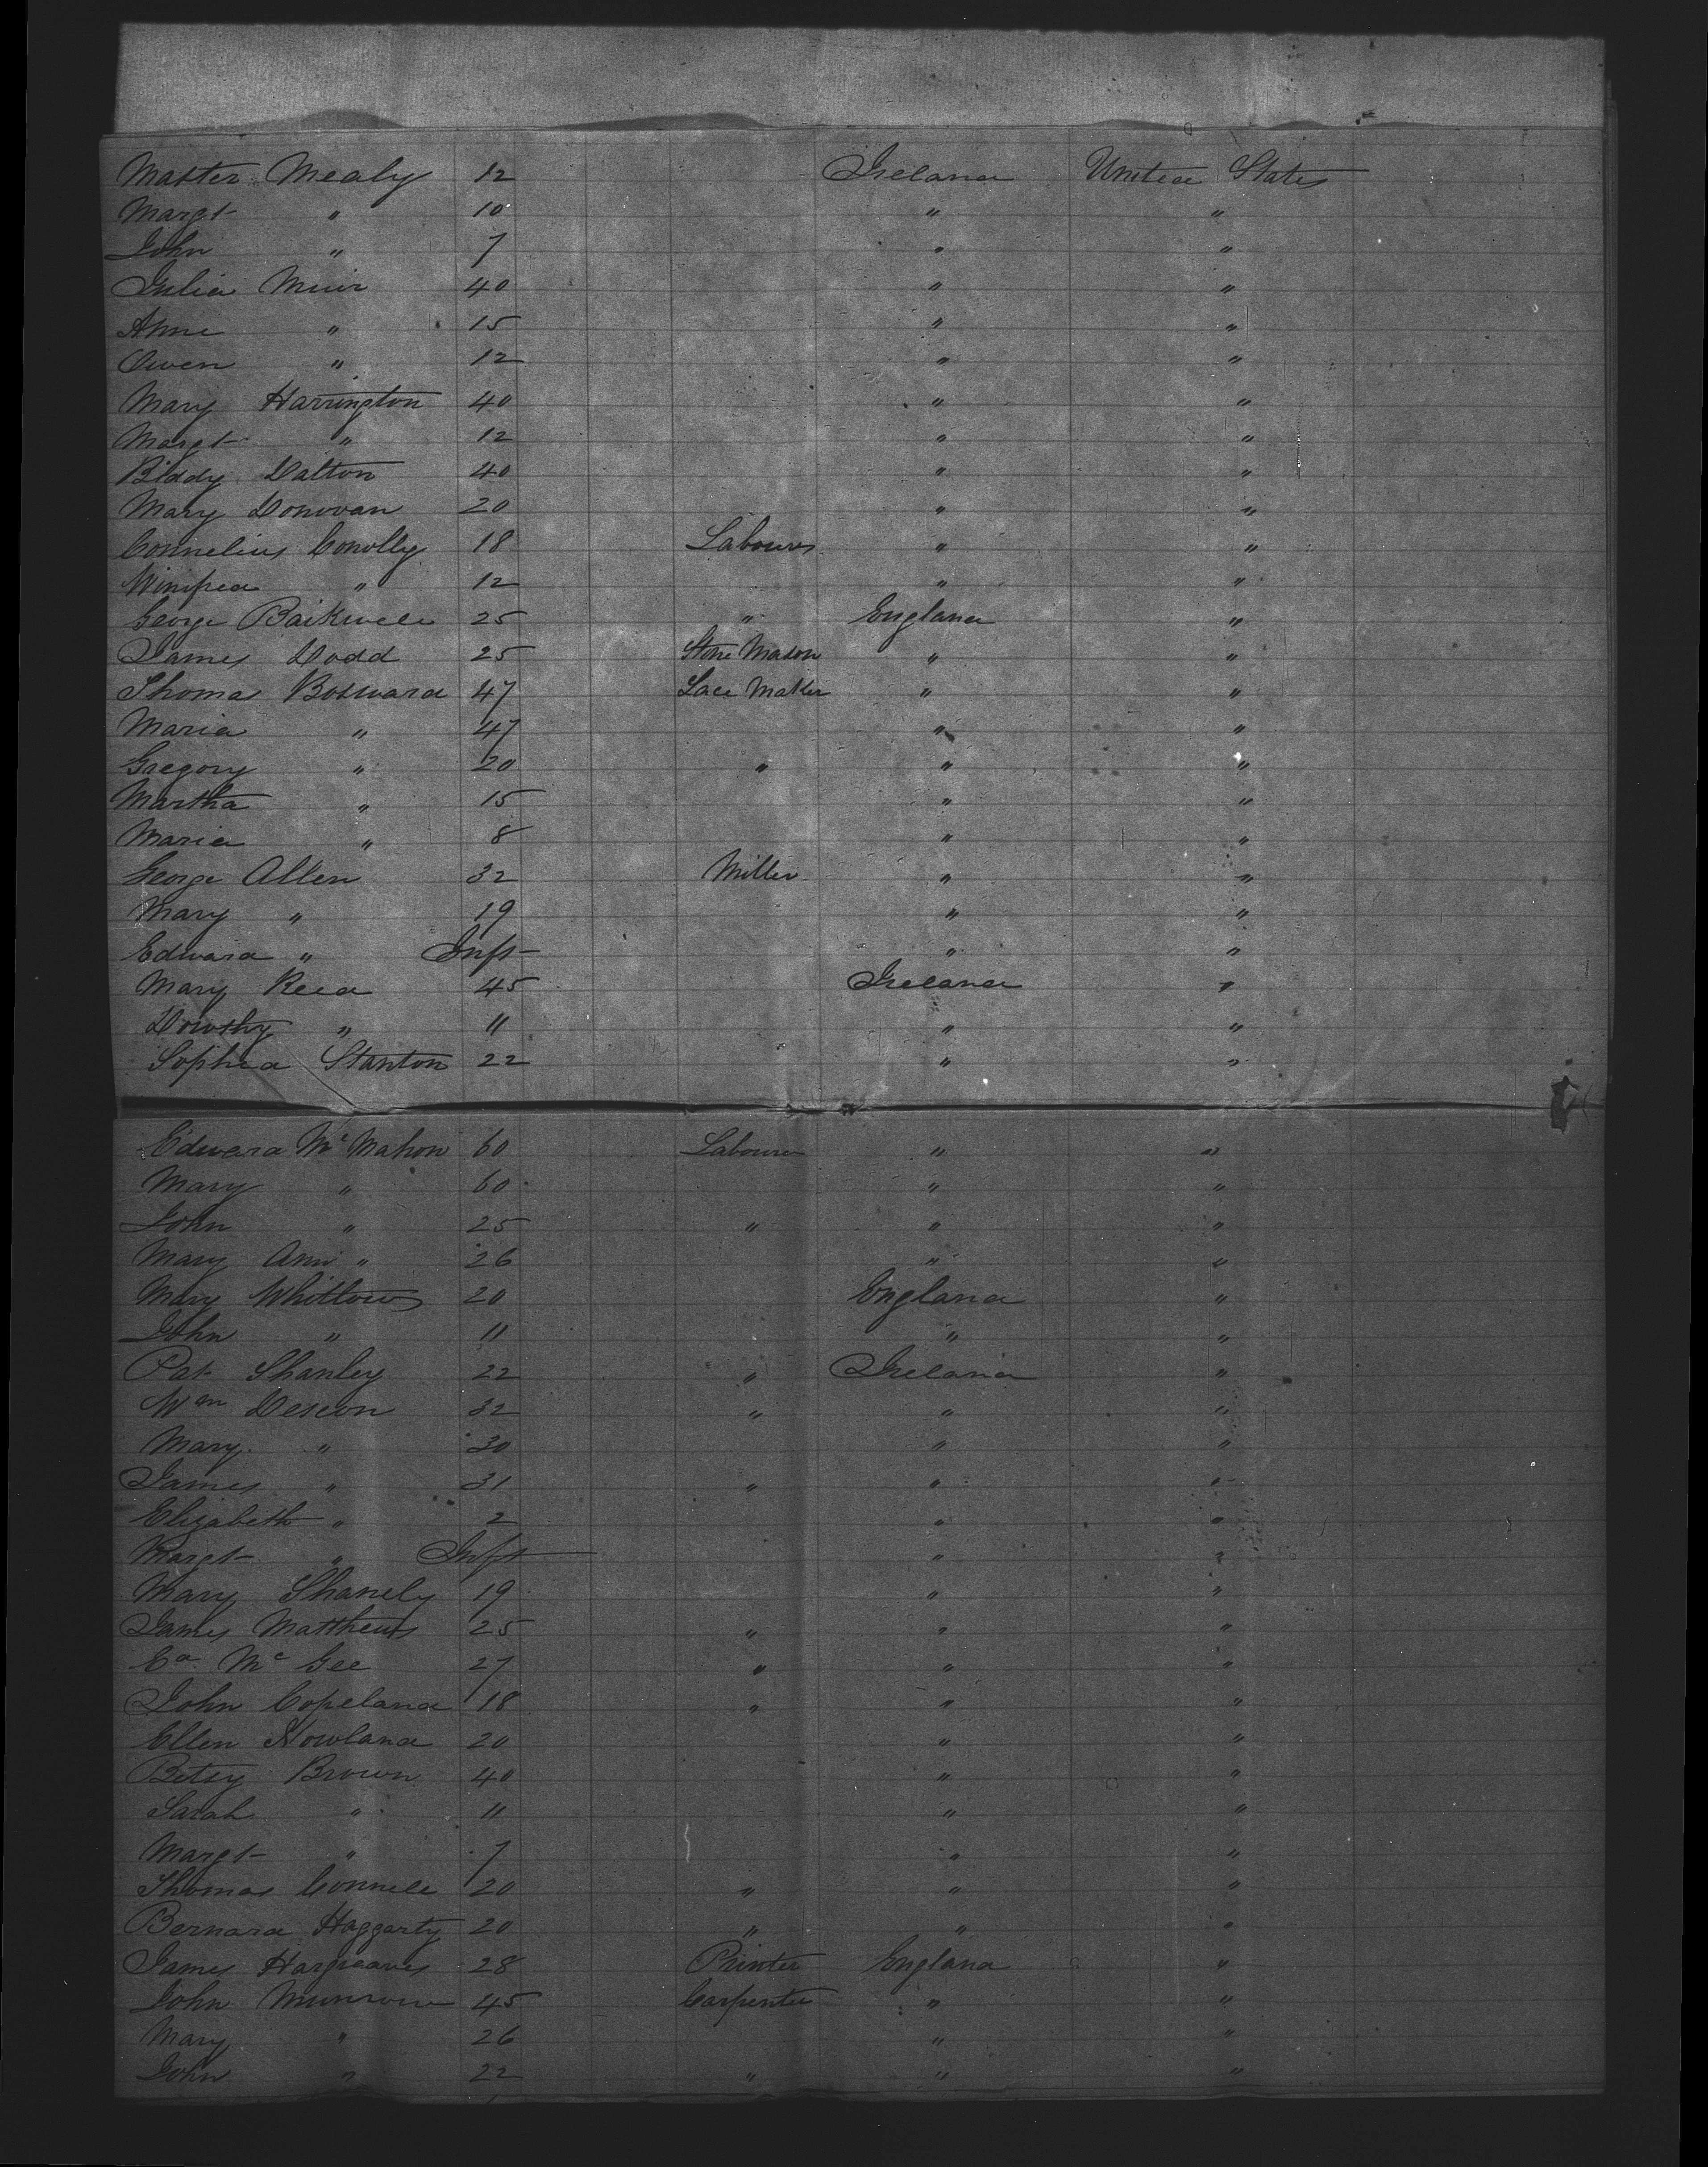 Master Mealy 12 Ireland United States
Margt " 10 " "
John " 7 " "
Julia Muir 40 " "
Anne " 15 " "
Owen " 12 " "
Mary Harrington 40 " "
Margt " 12 " "
Biddy Dalton 40 " "
Mary Donovan 20 " "
Connelius Conolly 18 Labourer " "
Winifred " 12 " "
George 25 " England "
James Dodd 25 Stone Mason " "
Thomas Bosward 47 Lace Maker " "
Maria " 47 " "
Gregory " 20 " " "
Martha " 15 " "
Maria " 8 " "
George Allen 32 Miller " "
Mary " 19 " "
Edward " Inft " "
Mary Reed 45 Ireland "
Dorothy " 11 " "
Sophia Stanton 22 " "
Edward McMahon 60 Labourer " "
Mary " 60 " "
John " 25 " " "
Mary Ann " 26 " "
Mary Whitlows 20 England "
John " 11 " "
Pat Shanley 22 " Ireland "
Wm 32 " " "
Mary " 30 " "
James " 31 " " "
Elizabeth " 2 " "
Margt " Inft " "
Mary Shanely 19 " "
James Matthews 25 " " "
Mc Gee 27 " " "
John Copeland 18 " " "
Ellen Howland 20 " "
Betsy Brown 40 " "
Sarah " 11 " "
Margt " 7 " "
Thomas Connell 20 " " "
Bernard Haggarty 20 " " "
James Hargreaves 28 Printer England "
John Munrow 45 Carpenter " "
Mary " 26 " "
John " 22 " " "